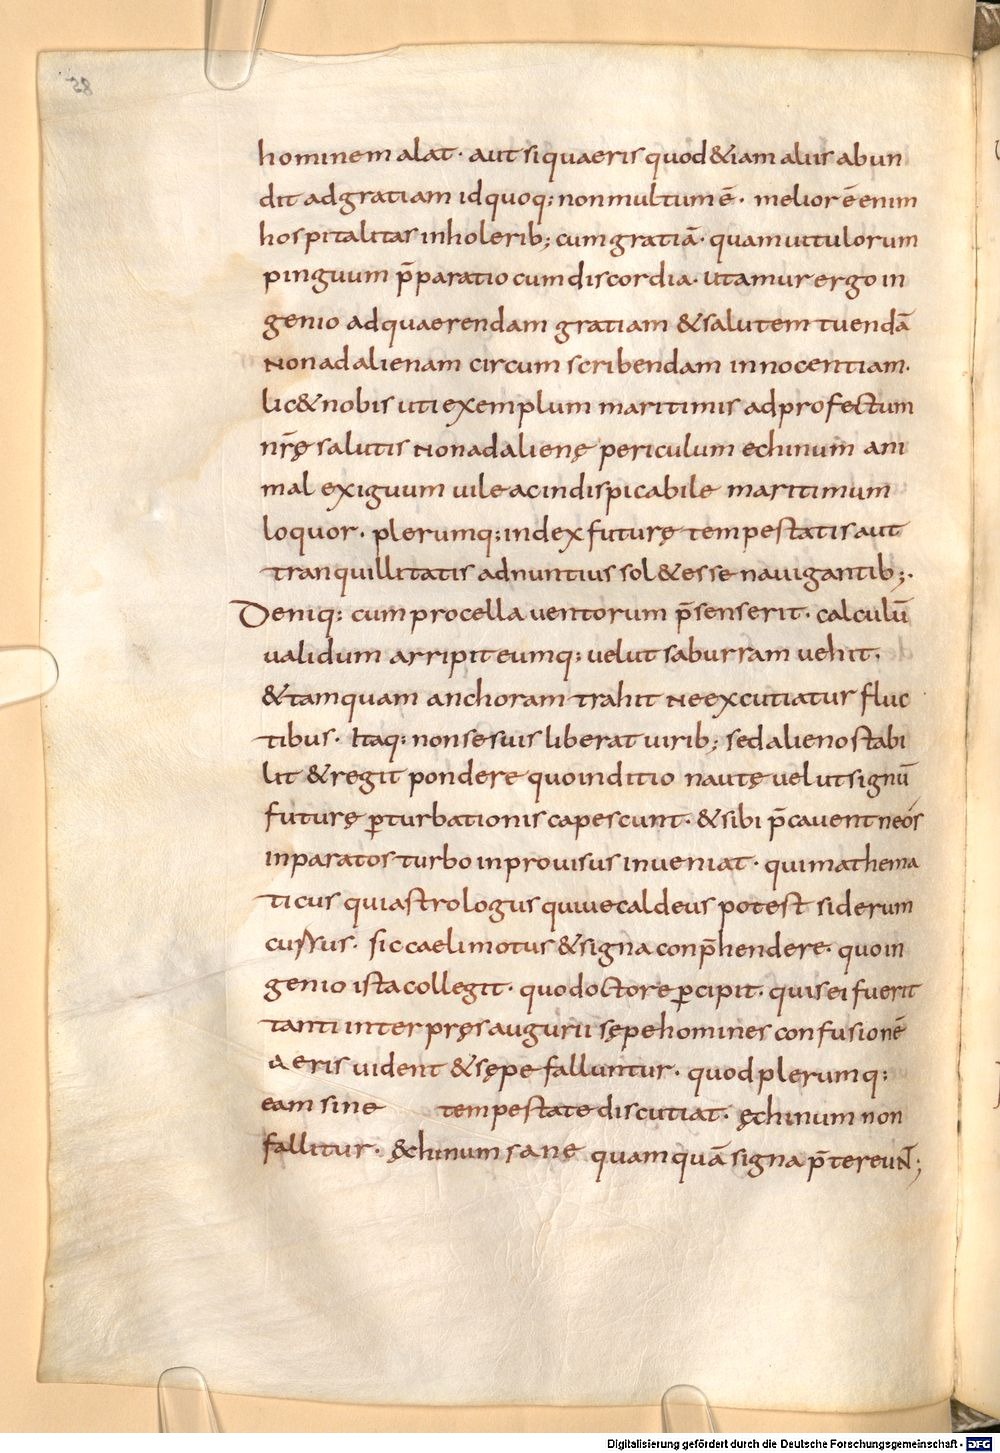 hominem alat · aut si quaeris quod &iam aluis abun
dit ad gratiam id quoq; non multum ē · melior ē enim
hospitalitas in holerib; cum gratiā · quam uitulorum
pinguium p̄paratio cum discordia · utamur ergo in
genio adquaerendam gratiam & salutem tuendā
Non ad alienam circum scribendam innocentiam ·
lic& nobis uti exemplum maritimis ad profectum
nr̄ę salutis Non ad alienę periculum echinum ani
mal exiguum uile ac indispicabile maritimum
loquor · plerumq; index futurę tempestatis aut
tranquillitatis adnuntius sol& esse nauigantib; ·
Deniq: cum procella uentorum p̄senserit · calculū
ualidum arripit eumq: uelut saburram uehit ·
& tamquam anchoram trahit Ne excutiatur fluc
tibus · Itaq: non se suis liberat uirib; sed alieno stabi
lit & regit pondere quo inditio nautę uelut signū
futurę p̱turbationis capescunt · & sibi p̄cauent ne os
inparatos turbo inprouisus inueniat · qui mathema
ticus qui astrologus quiue caldeus potest siderum
cursus · sic caeli motus & signa conp̄hendere · quo in
genio ista collegit · quo doctore p̱cipit · quis ei fuerit
tanti interpręs augurii sępe homines confusionē
aeris uident & sępe falluntur · quod plerumq:
eam sine tempestate discutiat · ęchinum non
fallitur · ęchinum sanę quamquā signa p̄tereuNT;
58
Digitalisierung gefördert durch die Deutsche Forschungsgemeinschaft - DFG